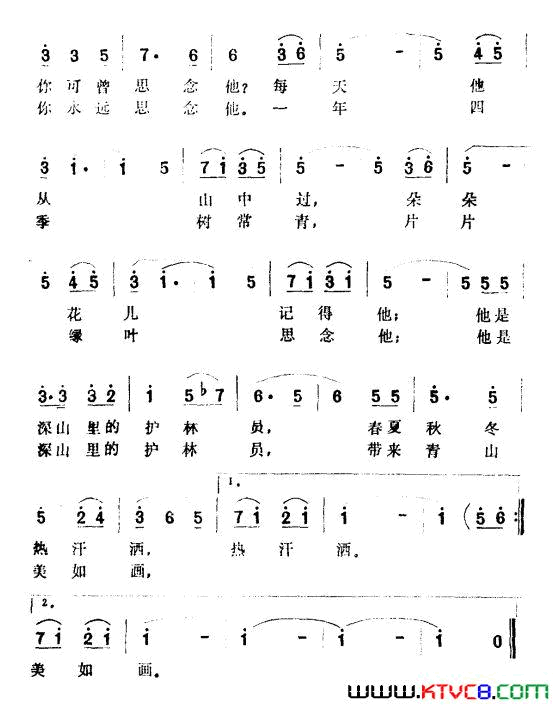 3 3 5 7· 6 6 3 6 5 - 5 4 5
你可曾思念他？每天他
你永远思念他。一年四
3 1· 1 5 7 1 3 5 5 - 5 3 6 5 -
从山中过，朵朵
季树常青，片片
5 4 5 3 1· 1 5 7 1 3 1 5 - 5 5 5
花儿记得他；他是
绿叶思念他；他是
3·3 3 2 1 5♭7 6· 5 6 5 5 5· 5
深山里的护林员，春夏秋冬
深山里的护林员，带来青山
1.
5 2 4 3 6 5 5 7 1 2 1 1 - 1 (5 6 :‖
热汗洒，热汗洒。
美如画，
2.
7 1 2 1 1 - 1 - 1 - 1 0
美如画。
www.KTVC8.COM